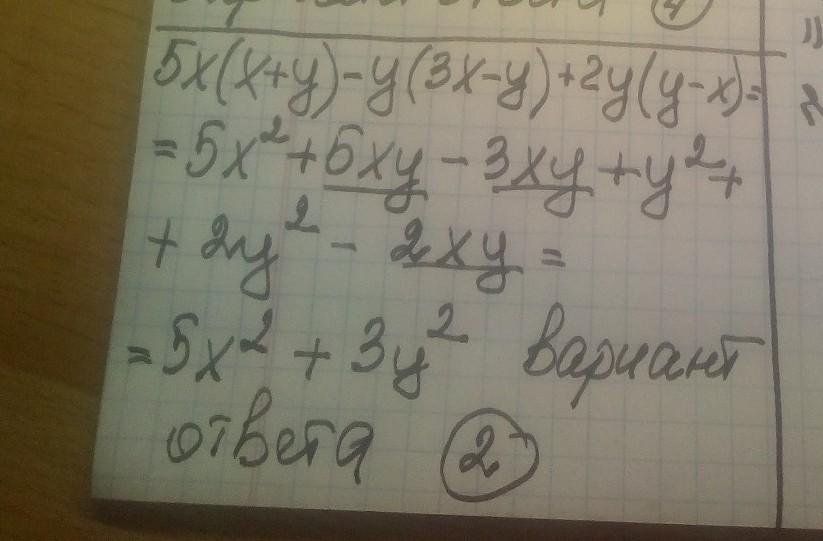 5x(x+y)-y(3x-y)+2y(y-x)=
=5x²+5xy-3xy+y²+
+2y²-2xy=
=5x²+3y² вариант
ответа 2